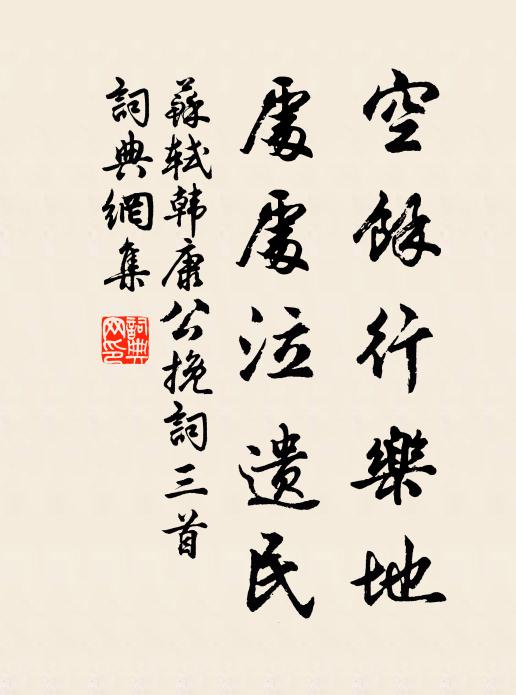 空餘行樂地
處處泣遺民
蘇軾韓康公挽詞三首
詞典網集
詞典
网印